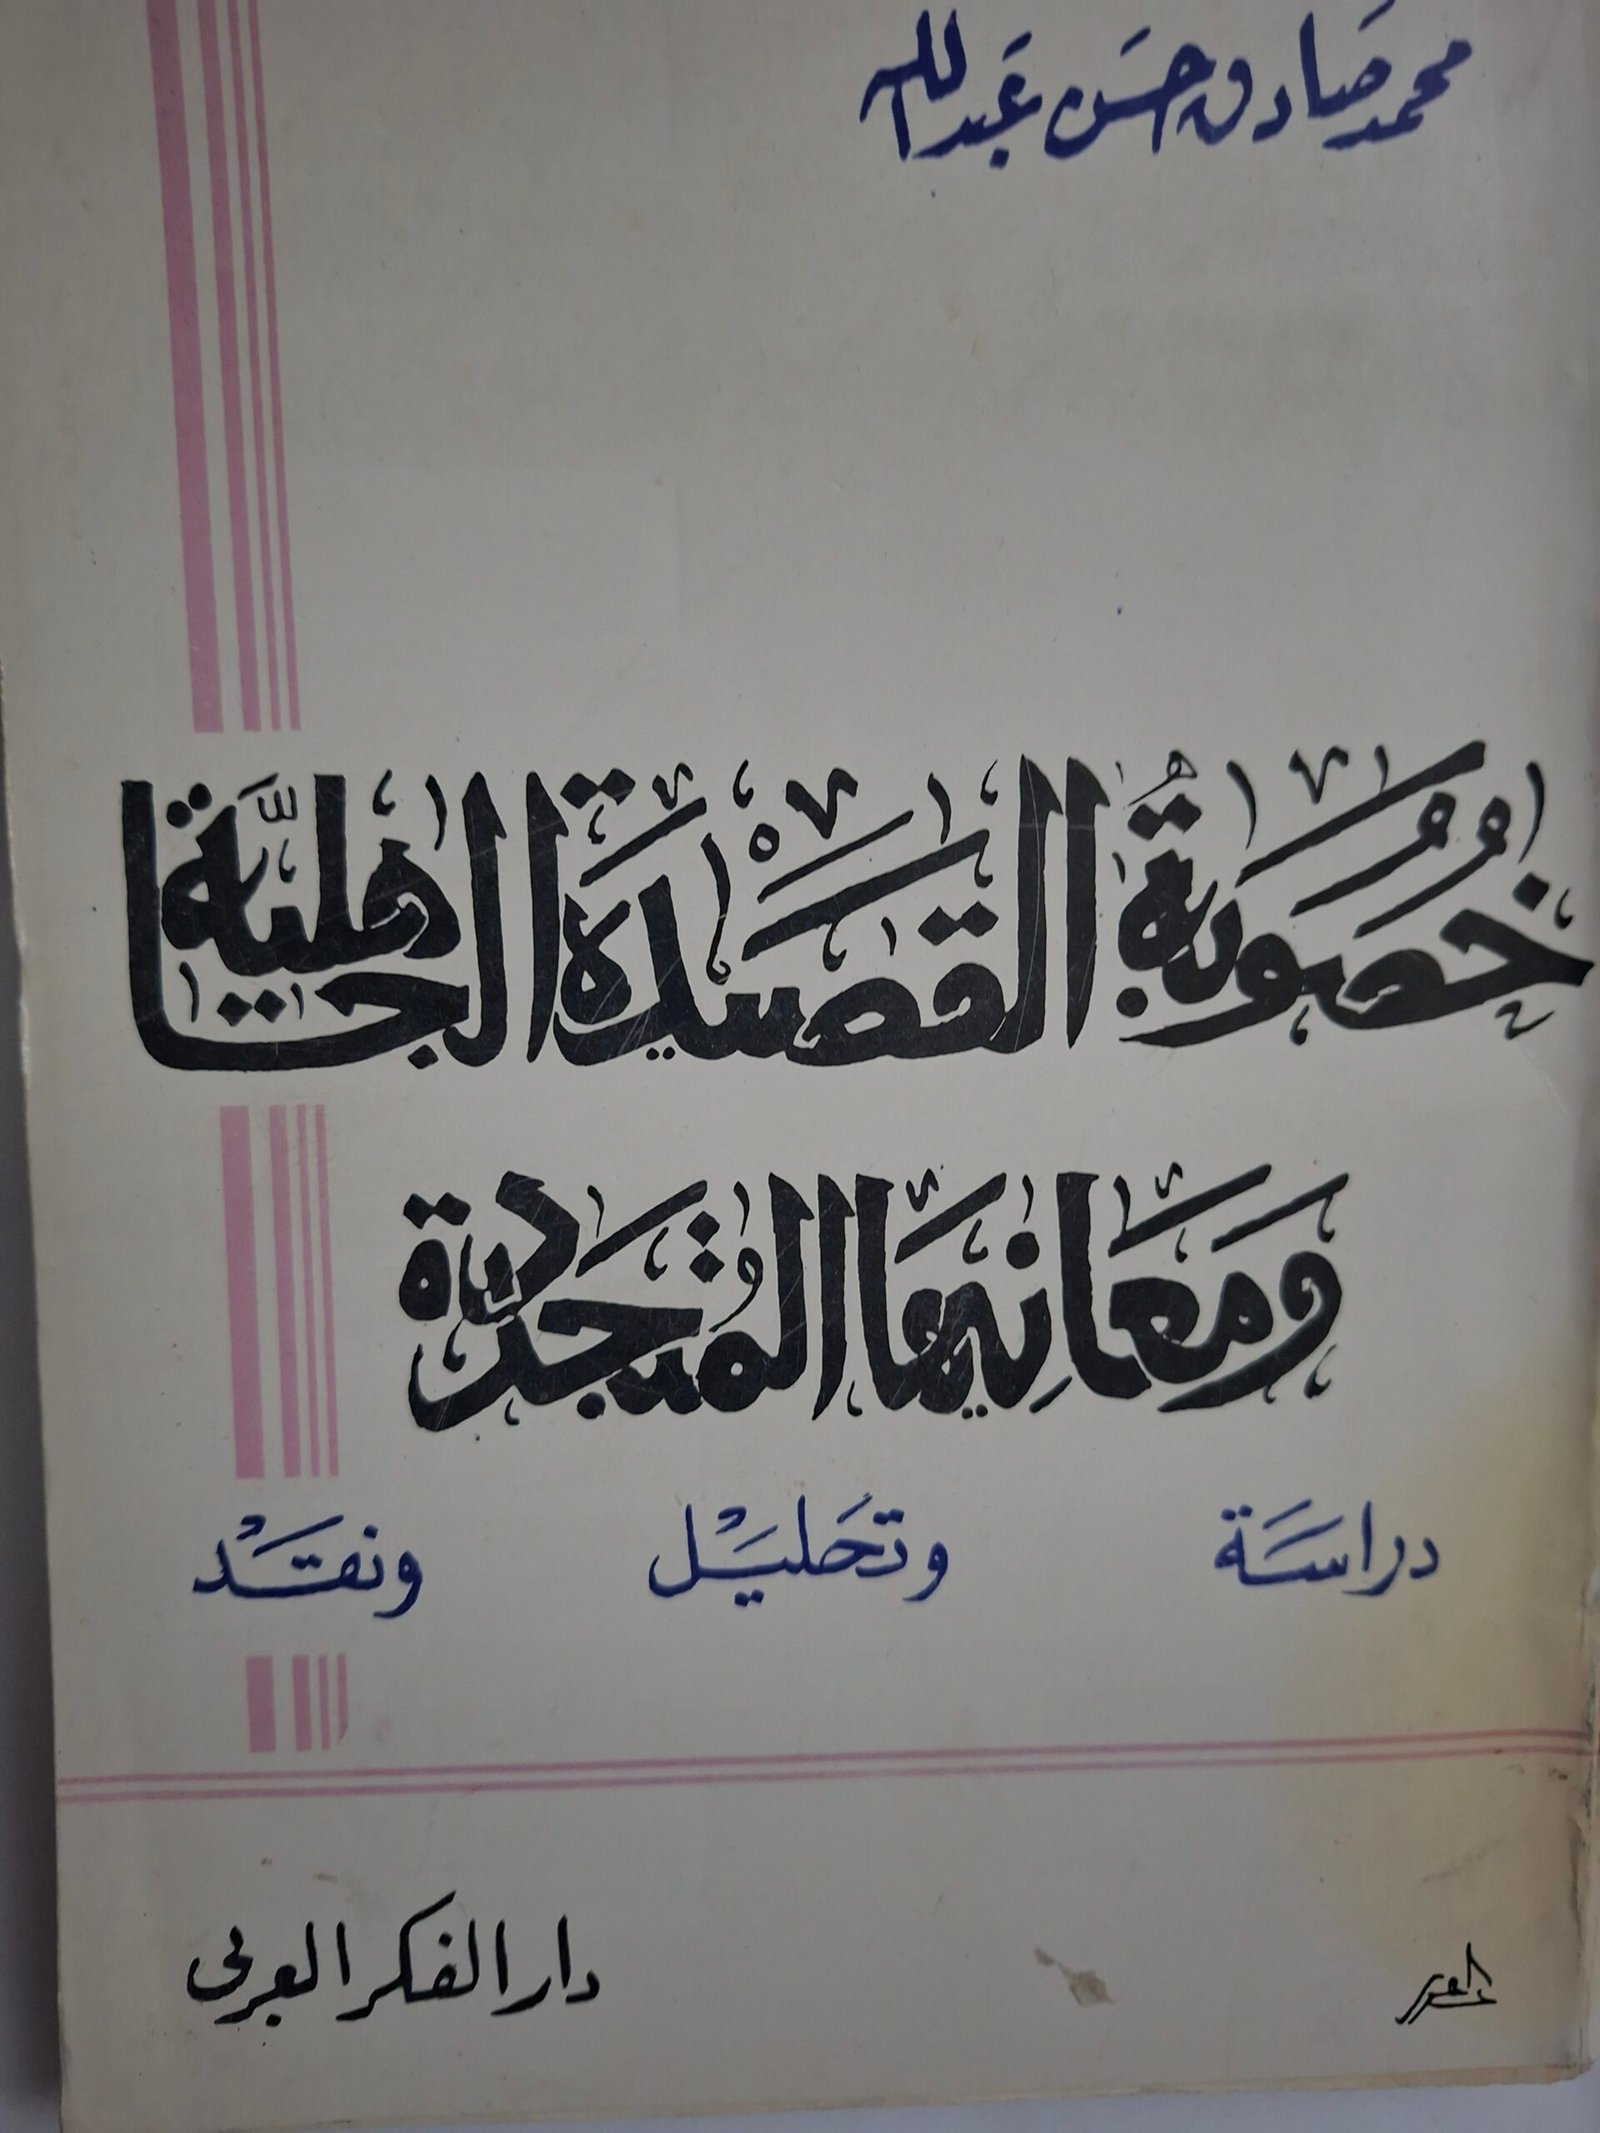 محمد صادق حسن عبد الله
خُصُوبَةُ القَصِيْدَةِ الجَاهِليَّةِ
وَمَعَانِيهَا المُتَجَدِّدَة
دراسَة وتحَليَلْ ونقَدْ
دار الفكر العربى